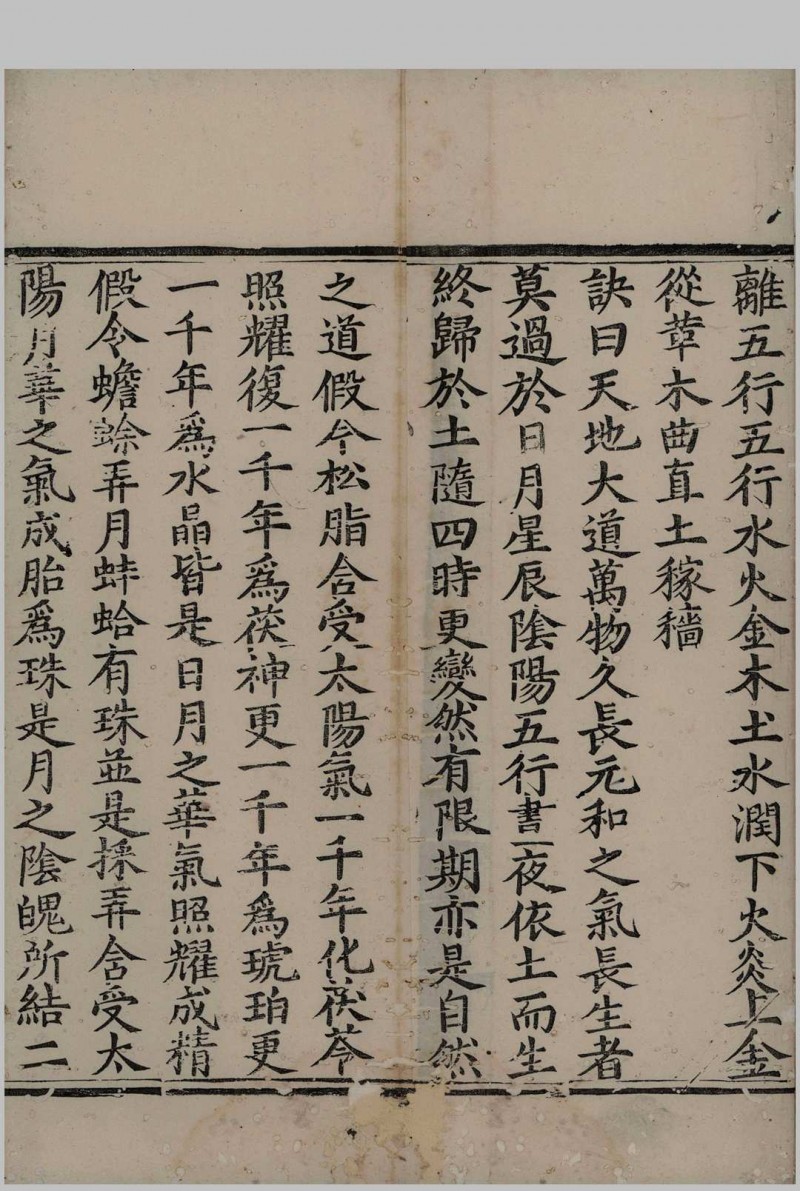 離五行五行水火金木土水潤下火炎上金
從革木曲直土稼穡
訣曰天地大道萬物久長元和之氣長生者
莫過於日月星辰陰陽五行晝夜依土而生
終歸於土隨四時更變然有限期亦是自然
之道假令松脂含受太陽氣一千年化茯苓
照耀復一千年爲茯神更一千年爲琥珀更
一千年爲水晶皆是日月之華氣照耀成精
假令蟾蜍弄月蚌蛤有珠並是採弄含受太
陽月華之氣成胎爲珠是月之陰魄所結二